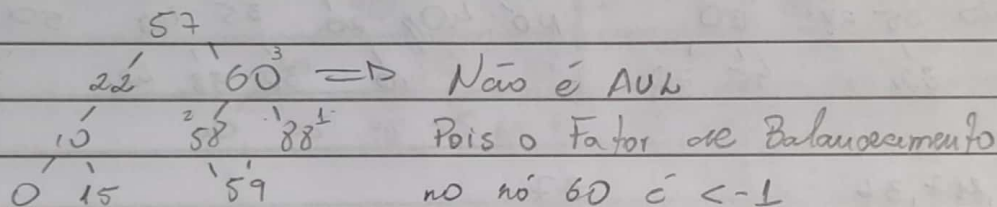 57
22 60 3 => Não é AVL
10 2 58 88 1 Pois o Fator de Balanceamento
0 15 59 no nó 60 é < -1